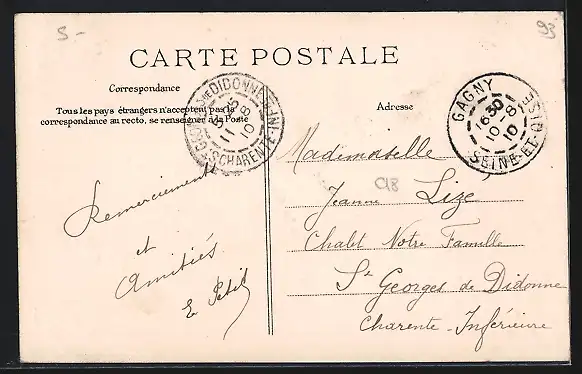 5-
93
CARTE POSTALE
Correspondance
Tous les pays étrangers n'acceptent pas la
correspondance au recto, se renseigner à la Poste
Adresse
GAGNY
16 30
10 - 8
10
SEINE-ET-OISE
DIDONNE
11 8
10
CHARENTE-INFRE
Remerciements
et
Amitiés
E Petit
Mademoiselle
Jeanne Lizé
C18
Chalet Notre Famille
St Georges de Didonne
Charente-Inférieure